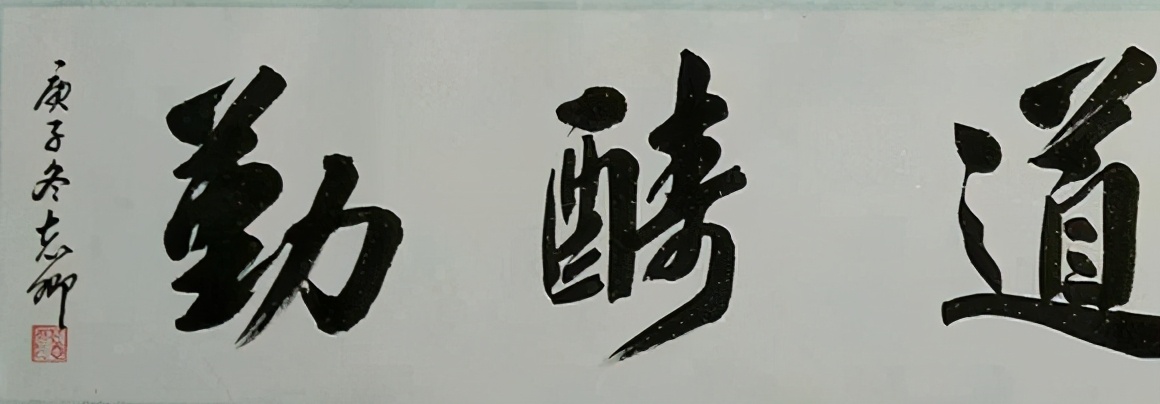 道酬勤
庚子冬志卿